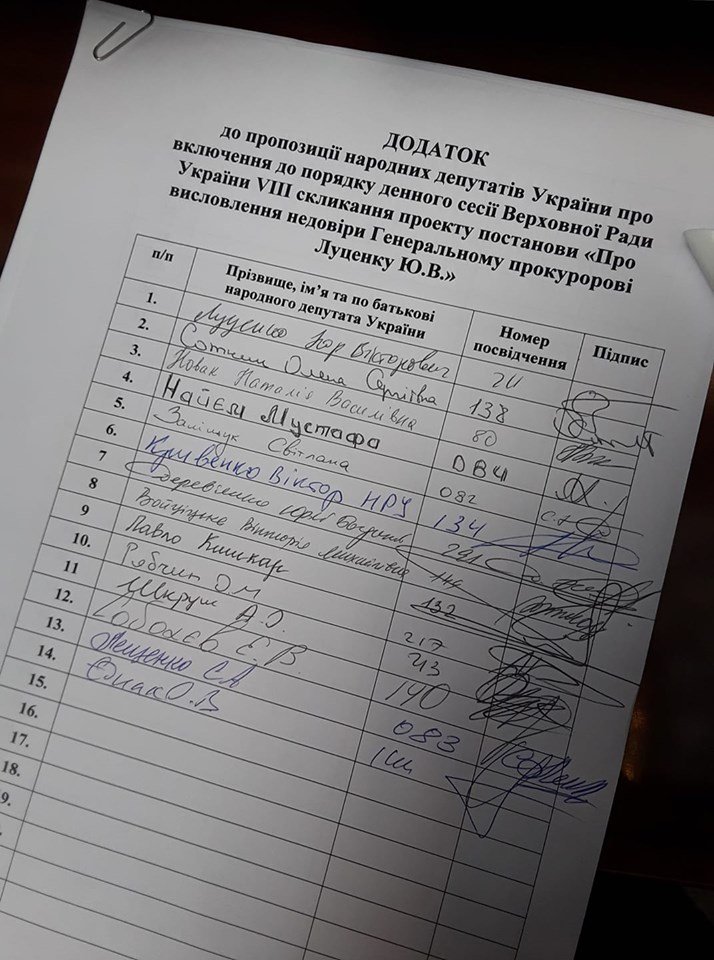 ДОДАТОК
до пропозиції народних депутатів України про
включення до порядку денного сесії Верховної Ради
України VIII скликання проекту постанови «Про
висловлення недовіри Генеральному прокуророві
Луценку Ю.В.»
п/п Прізвище, ім’я та по батькові народного депутата України Номер посвідчення Підпис
1. Луценко Вікторович
2. Сотник Олена Сергіївна 138
3. Новак Наталія Василівна 80
4. Найєм Мустафа 081
5. Заліщук Світлана 082
6. Кривенко Віктор НРУ 134
7 Дерев'янко Юрій Богданович
8 Войціцька Вікторія Михайлівна
9 Павло Кишкар 132
10. Рябчин О.М. 217
11 Шкрум А.І. 213
12. Соболєв Є.В. 140
13. Лещенко С.А 083
14. О.В
15.
16.
17.
18.
9.